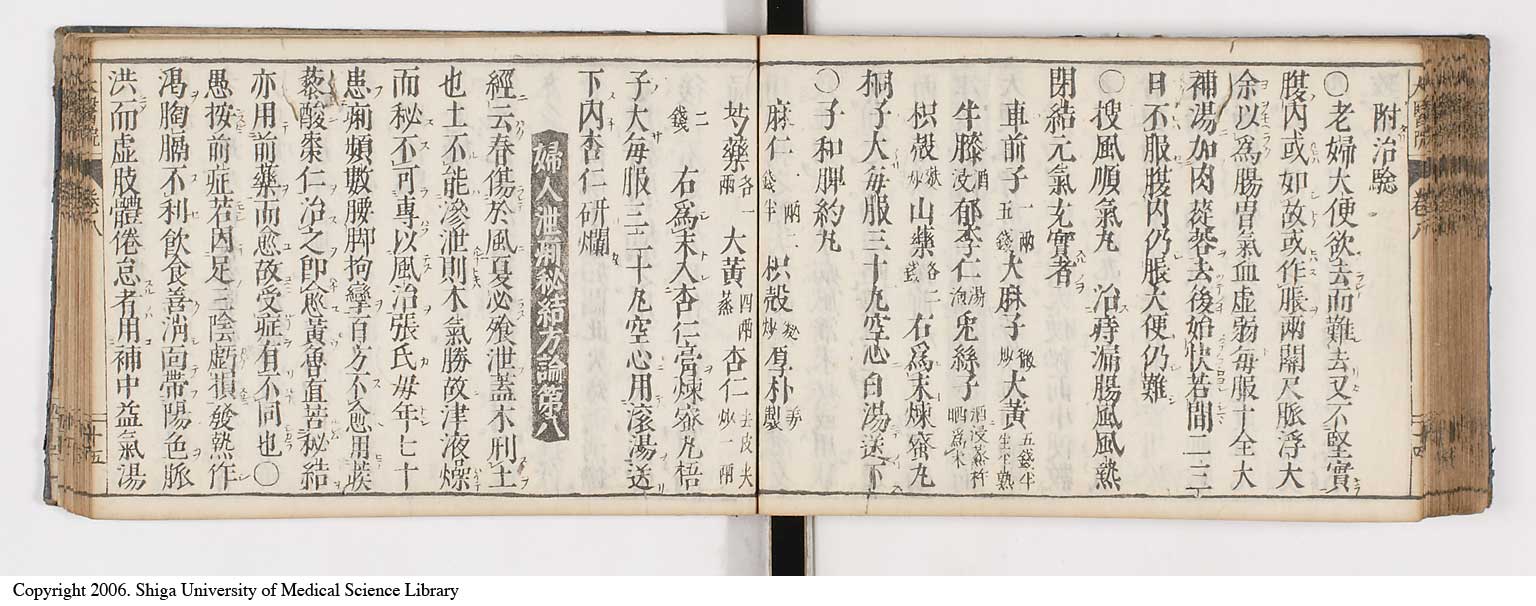 附治驗
○老婦大便欲去而難去又不堅實
腹内或如故或作脹兩關尺脈浮大
余以為腸胃氣血虚弱毎服十全大
補湯加肉蓯蓉去後始快若間二三
日不服腹内仍脹大便仍難
○搜風順氣丸 治痔漏腸風風熱
閉結元氣充實者
車前子一兩五錢大麻子微炒大黃五錢半生半熟
牛膝酒浸郁李仁湯泡兎絲子酒浸蒸杵晒為末
枳殻麩炒山藥各二錢右為末煉蜜丸
桐子大毎服三十丸空心白湯送下
○子和脾約丸
麻仁一兩二錢半枳殻麩炒厚朴製
芍藥各一兩大黃四兩蒸杏仁去皮尖炒一兩
二錢 右為末入杏仁膏煉蜜丸梧
子大毎服三二十丸空心用滚湯送
下内杏仁研爛
婦人泄痢秘結方論第八
經云春傷於風夏必飧泄蓋木刑土
也土不能滲泄則木氣勝故津液燥
而秘不可專以風治張氏毎年七十
患痢頻數腰脚拘攣百方不愈用㷟
蔾酸棗仁治之即愈黃魯直苦秘結
亦用前藥而愈故受症有不同也○
愚按前症若因足三陰虧損發熱作
渇胸膈不利飲食善消面帶陽色脈
洪而虚肢體倦怠者用補中益氣湯
卷八
十五
Copyright 2006. Shiga University of Medical Science Library